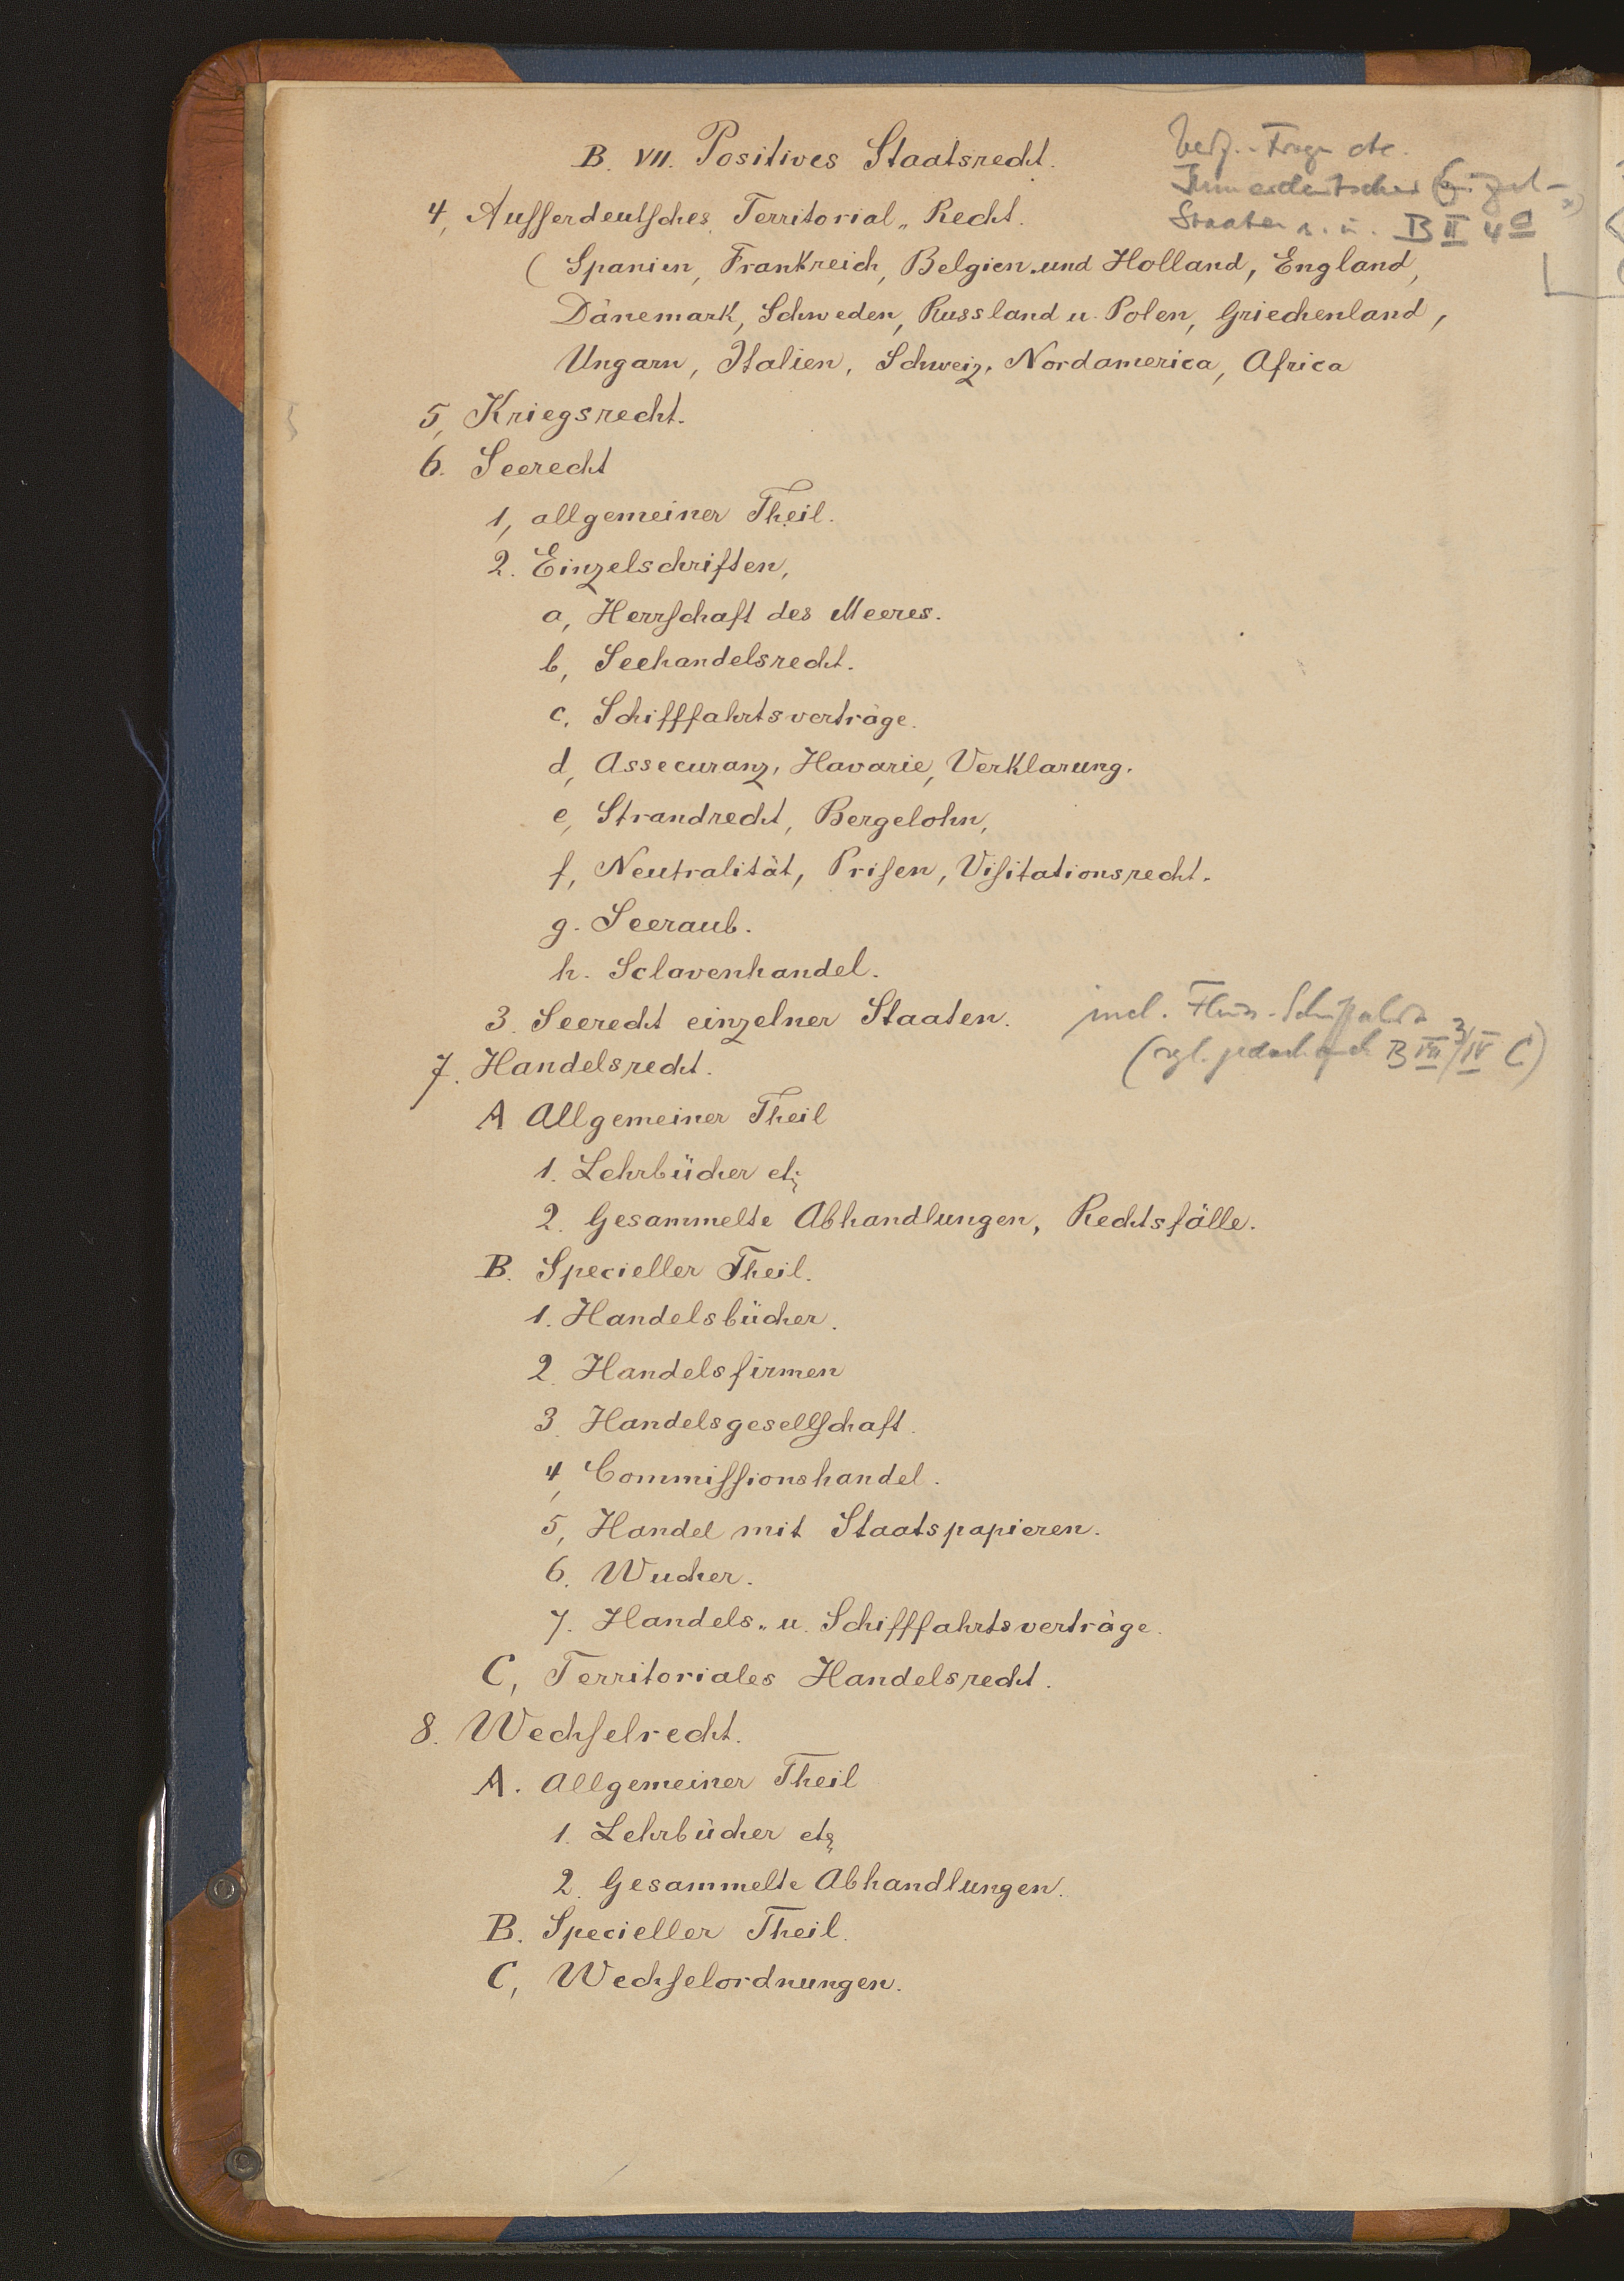 B. VII. Positives Staatsrecht.
Verf.-Fragen etc.
Staaten s. u. B II 4 a
4, Aufserdeutsches Territorial„Recht.
(Spanien, Frankreich, Belgien und Holland, England,
Dänemark, Schweden, Russland u. Polen, Griechenland,
Ungarn, Italien, Schweiz, Nordamerica, Africa
5, Kriegsrecht.
6. Seerecht
1, allgemeiner Theil.
2. Einzelschriften,
a, Herrschaft des Meeres.
b, Seehandelsrecht.
c. Schifffahrtsverträge.
d, Assecuranz, Havarie, Verklarung.
e, Strandrecht, Bergelohn,
f, Neutralität, Prisen, Visitationsrecht.
g. Seeraub.
h. Sclavenhandel.
3. Seerecht einzelner Staaten.
incl. Fluss-Schiffahrt
(vgl. jedoch auch B VII 3/IV C)
7. Handelsrecht.
A Allgemeiner Theil
1. Lehrbücher etc
2. Gesammelte Abhandlungen, Rechtsfälle.
B. Specieller Theil.
1. Handelsbücher.
2. Handelsfirmen
3. Handelsgesellschaft.
4, Commissionshandel.
5, Handel mit Staatspapieren.
6. Wucher.
7. Handels„ u. Schifffahrtsverträge.
C, Territoriales Handelsrecht.
8. Wechselrecht.
A. Allgemeiner Theil
1. Lehrbücher etc
2. Gesammelte Abhandlungen.
B. Specieller Theil.
C, Wechselordnungen.